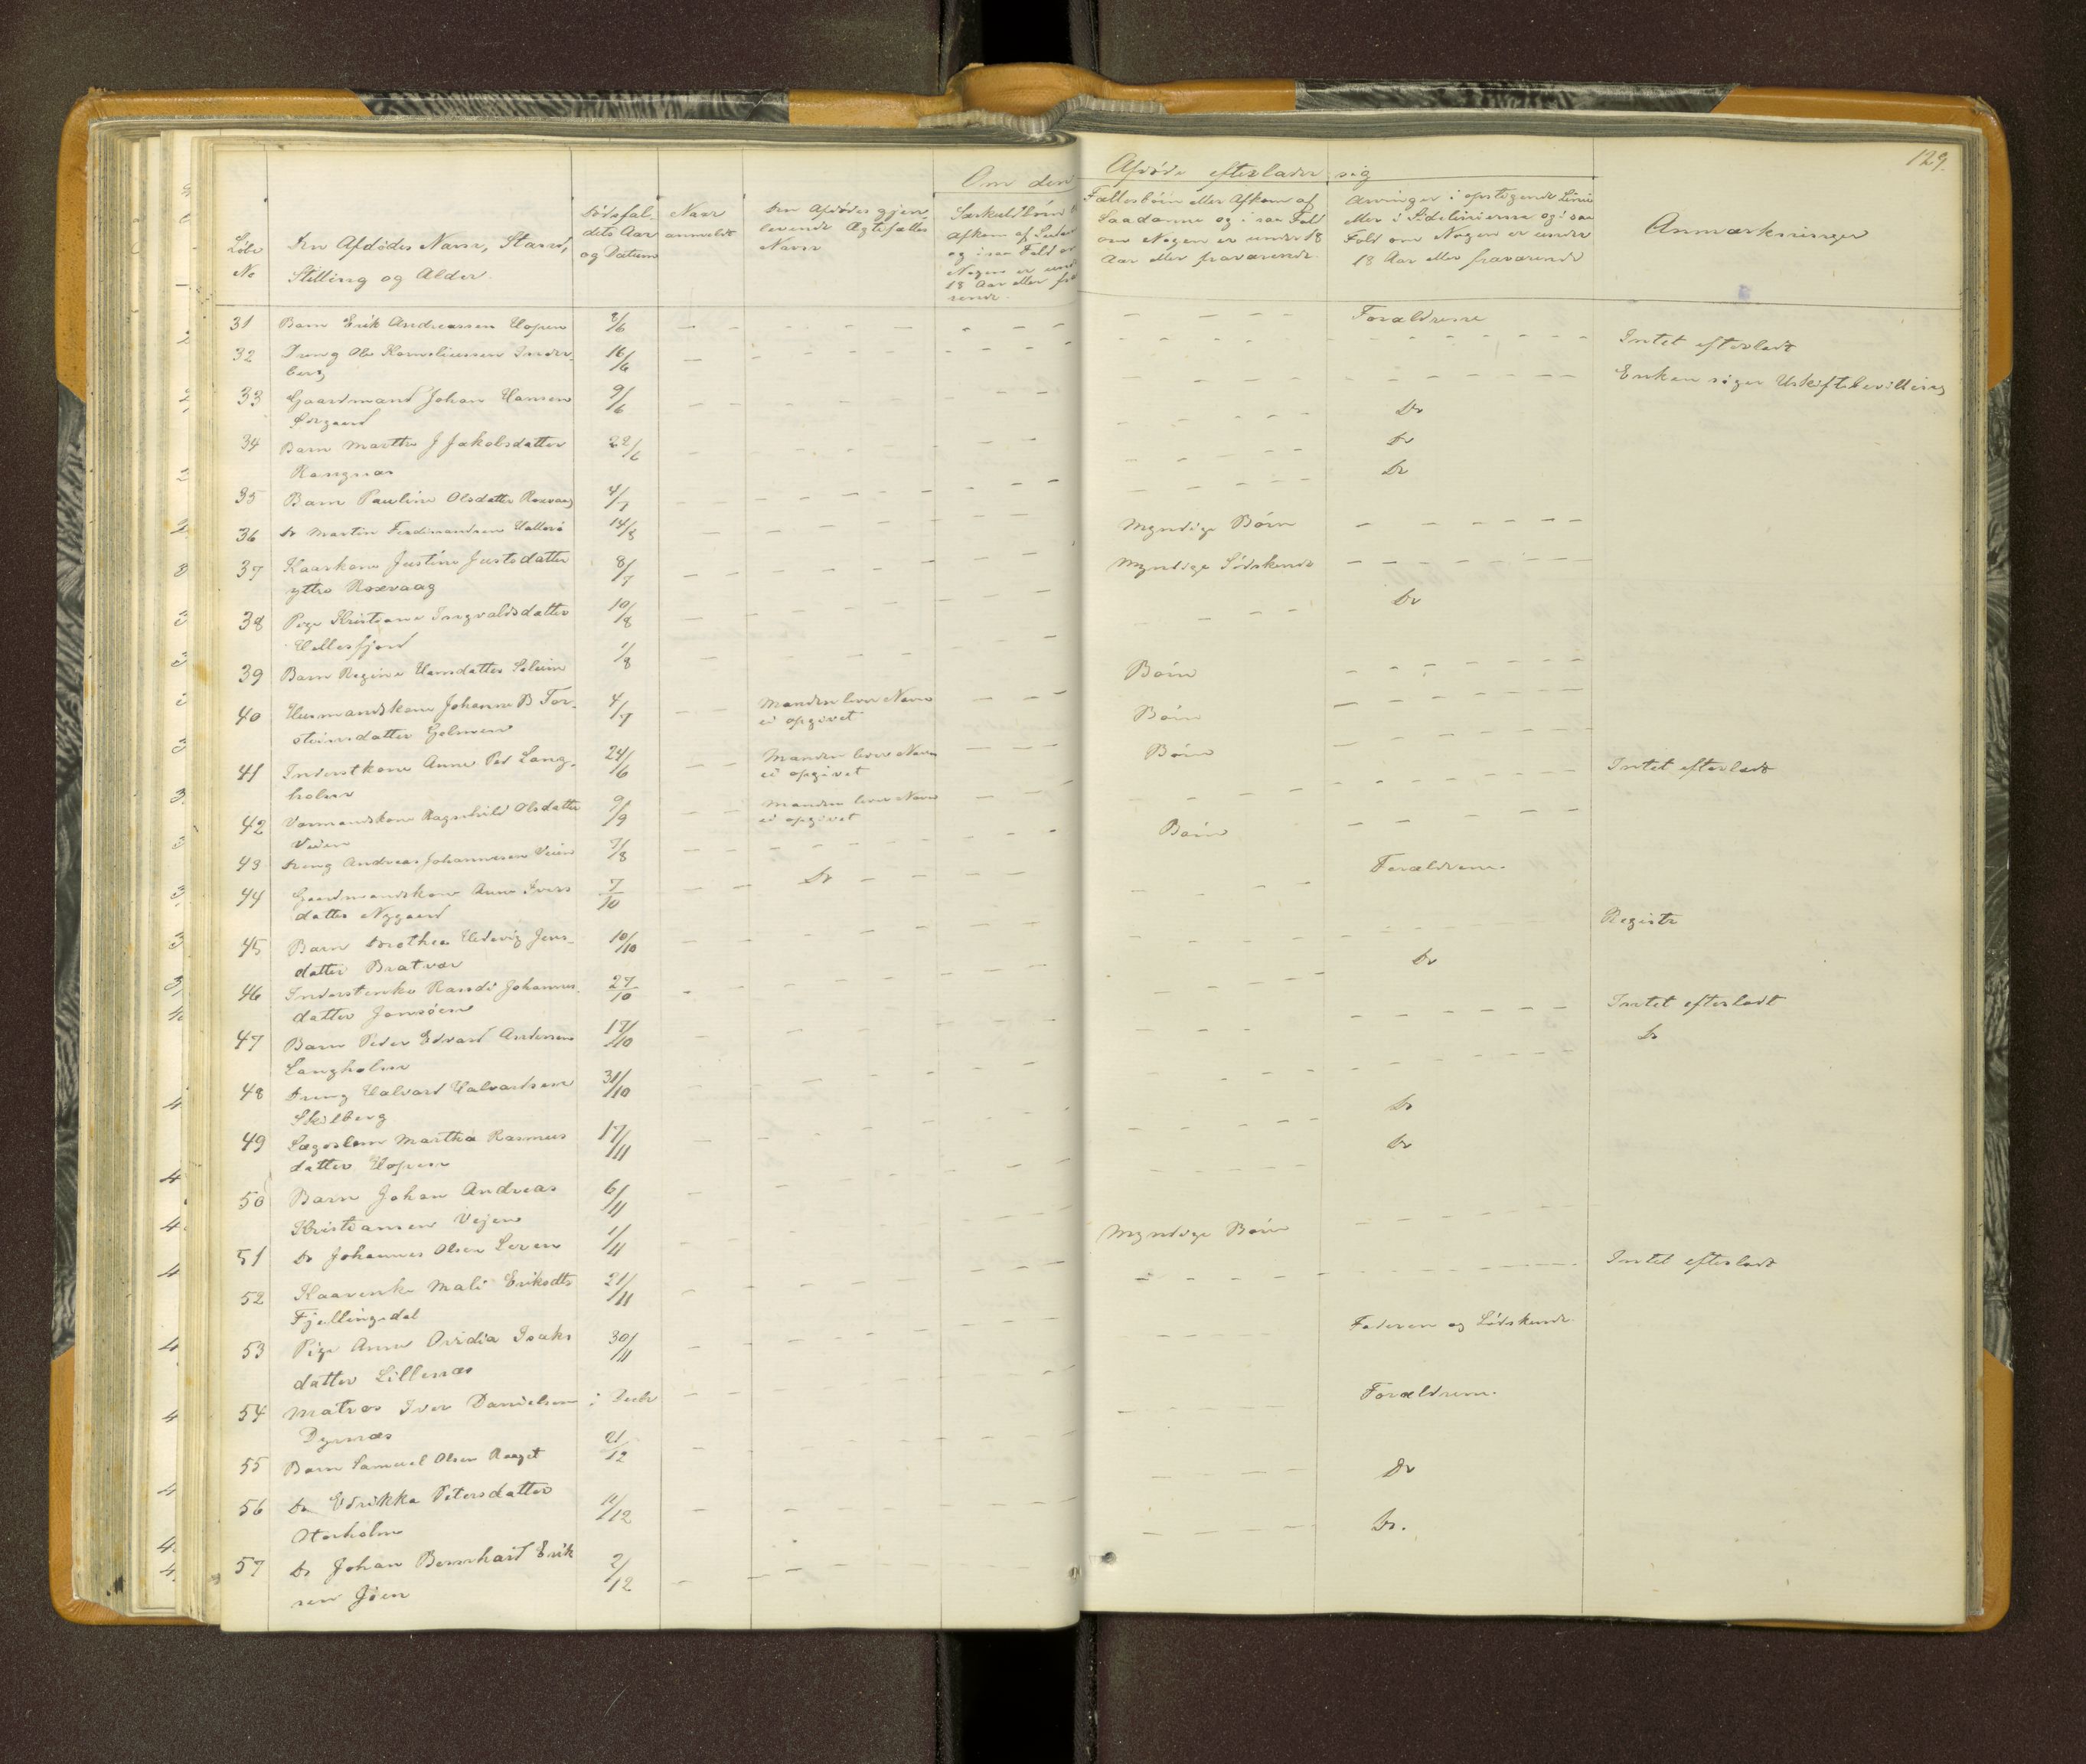 129.
Om den Afdøde efterlader sig
Løbe No
Den Afdødes Navn, Stand, Stilling og Alder.
Dødsfaldets Aar og Datum
Naar anmeldt
Den Afdødes gjenlevende Ægtefælles Navn
Særkuldbørn
Afkom af
og i saa Fald om
Nogen er
18 Aar eller
Fællesbørn eller Afkom af
Saadanne og i saa Fald
om Nogen er under 18
Aar eller fraværende.
Arvinger i opstigende Linie
eller i Sidelinierne og i saa
Fald om Nogen er under
18 Aar eller fraværende
Anmærkninger
31 Barn Erik Andreassen Hopen 2/6 Forældrene
32 Dreng Ole Korneliussen Inder-
berg 16/6 Intet efterladt
33 Gaardmand Johan Hansen 9/6 Enken søger Uskiftebevilling
34 Barn Marthe J Jakobsdatter 22/6 Do
35 Barn Pauline Olsdatter Roxvaag 4/7 Do
36 Do Martin Ferdinandsen 14/8 Do
37 Kaarkone Justine Justsdatter 8/7 Myndige Børn
ytre Roxvaag
38 Pige Kristiane Ingvaldsdatter 10/8 Myndige Sødskende
Hellesfjord
39 Barn Regine Hansdatter 1/8 Do
40 Husmandskone Johanne B Tor- 4/7 Manden lever Navn Børn
steinsdatter ei opgivet
41 Inderstkone Anne Ped Lang- 24/6 Manden lever Navn Børn
holm ei opgivet
42 Vaarmandskone Ragnhild Olsdatter 9/9 Manden lever Navn Børn
Veien ei opgivet
43 Dreng Andreas Johannesen Veien 7/8 Intet efterladt
44 Gaardmandskone Anne Ivers 7/10 Do Børn
datter Nygaard
45 Barn Dorothea Hedevig Jens- 10/10 Forældrene.
datter Bratvær
46 Inderstenke Randi Johannes- 27/10 Registr
datter
47 Barn Peder Edvard Andersen 17/10 Do
Langholm
48 Dreng Halvard Halvardsen 31/10 Intet efterladt
49 Lægslem Martha Rasmus 17/11 Do
datter Hopen
50 Barn Johan Andreas 6/11 Do
Kristiansen Vejen
51 Do Johannes Olsen 1/11 Do
52 Kaarenke Mali Eriksdtr 21/11 Myndige Børn
Fjellingsdal
53 Pige Anne Ovidia Isaks 30/11 Intet efterladt
datter Lillenæs
54 Matros Iver Danielsen i Decbr Faderen og Sødskende.
Dyrnæs
55 Barn Samuel Olsen 21/12 Forældrene.
56 Do Edrikka Petersdatter 11/12 Do
57 Do Johan Bernhard Erik 2/12 Do.
sen